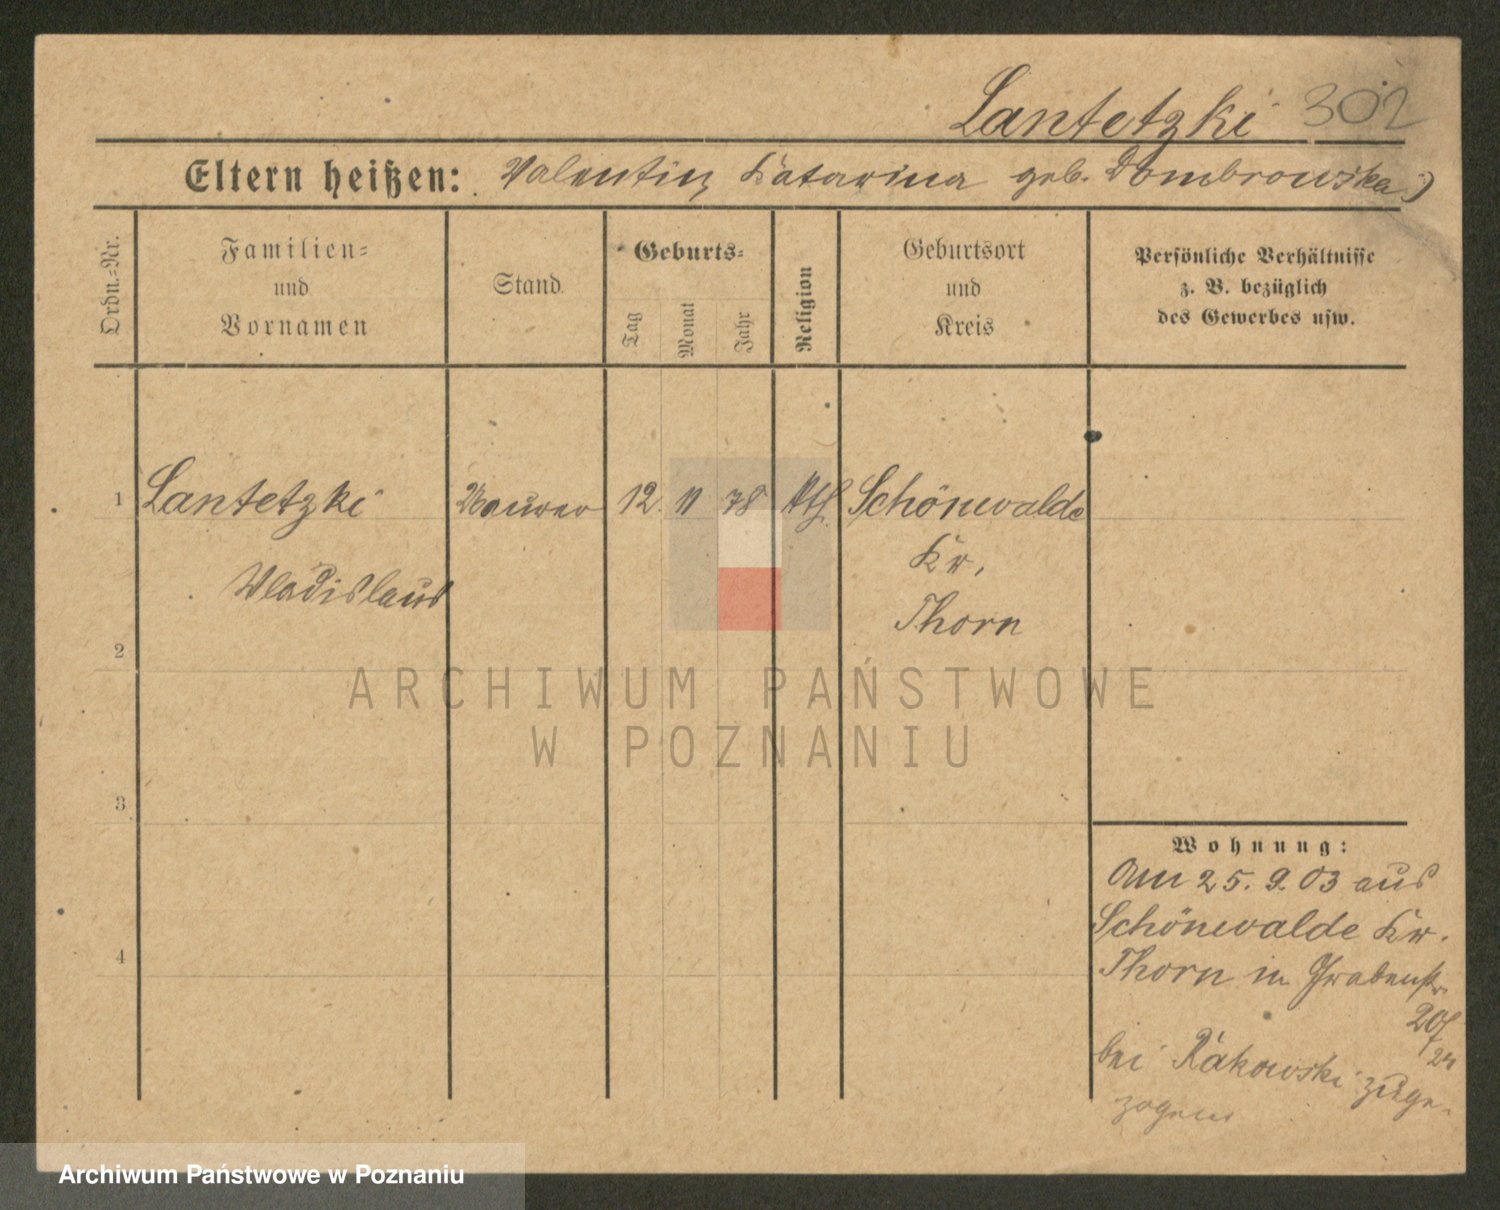 Lantetzki 302
Eltern heißen: Valentin, Katarina geb. Dombrowska)
Ordn.=Nr.
Familien=
und
Vornamen
Stand
Geburts=
Tag
Monat
Jahr
Religion
Geburtsort
und
Kreis
Persönliche Verhältnisse
z. B. bezüglich
des Gewerbes usw.
1 Lantetzki Maurer 12. 11 78 kth. Schönwalde
Kr.
Wladislaus
Thorn
2
ARCHIWUM PAŃSTWOWE
W POZNANIU
3
Wohnung:
Am 25. 9. 03 aus
Schönwalde Kr.
4
Thorn in Grabenstr.
bei Rakowski zuge-
zogen
Archiwum Państwowe w Poznaniu